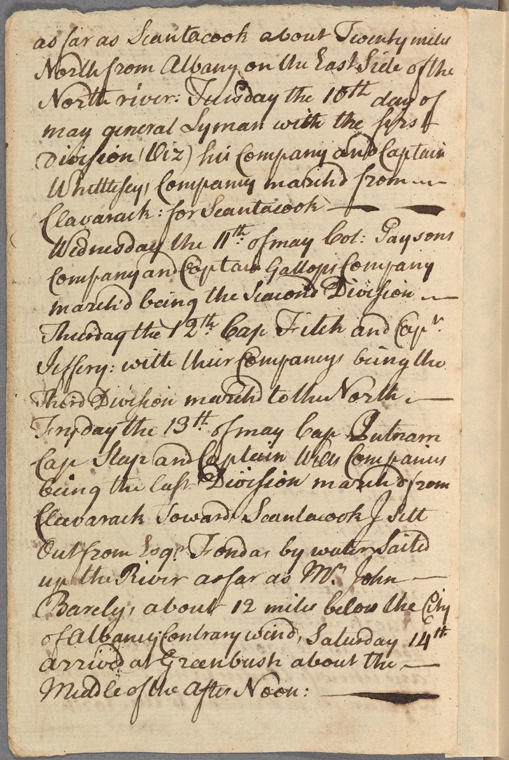 as far as Scantacook about Twenty miles
North from Albany on the East Side of the
North river: Tuesday the 10th day of
may general Lyman with the first
Division (Viz) his Company and Captain
Whittlesey, Company march'd from
Clavarack: for Scantacook
Wednesday the 11th of may Col: Paysons
Company and Captain Gallops Company
march'd being the Second Division
Thursday the 12th Cap Fitch and Capn.
Jeffery: with their Companeys being the
Third Division march'd to the North
Fryday the 13th of may Cap Putnam
Cap Slap and Captain Wells Companies
being the last Division march'd from
Clavarack Toward Scantacook I Sett
Out from Esqr. Fondas by water, Sail'd
up the River as far as Mr. John
Barely, about 12 mile below the City
of Albaney Contrary wind, Saturday 14th
arrivd at Greenbush about the
Middle of the After Noon: